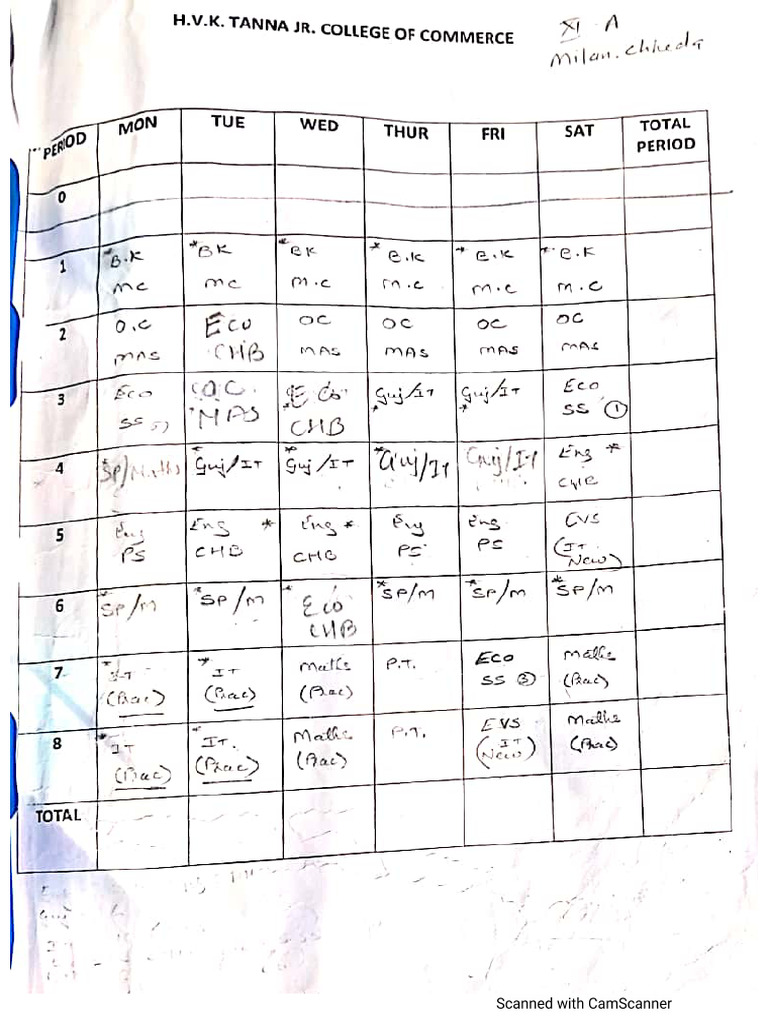 H.V.K. TANNA JR. COLLEGE OF COMMERCE
XI A
Milan. Chheda
PERIOD MON TUE WED THUR FRI SAT TOTAL PERIOD
0
1 *B.K *BK *BK *B.K *B.K *B.K
MC MC M.C M.C M.C M.C
2 O.C ECO OC OC OC OC
MAS CHB MAS MAS MAS MAS
3 Eco O.C. ECO Guj/IT Guj/IT Eco
SS MAS CHB * * SS ①
4 SP/Maths *Guj/IT *Guj/IT *Guj/IT Guj/IT Eng *
CHB
5 Eng Eng * Eng * Eng Eng EVS
PS CHB CHB PS PS (IT New)
6 *SP/M *SP/M * Eco *SP/M *SP/M *SP/M
CHB
7 *IT *IT Maths P.T. ECO Maths
(Prac) (Prac) (Prac) SS ③ (Prac)
8 *IT *IT. Maths P.T. EVS Maths
(Prac) (Prac) (Prac) (IT New) (Prac)
TOTAL
Scanned with CamScanner